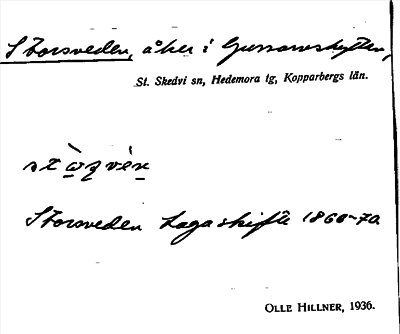 Storsveden, åker i Gussarvshyttan,
St. Skedvi sn, Hedemora tg, Kopparbergs län.
Storsveden Laga skifte 1860-70
OLLE HILLNER, 1936.